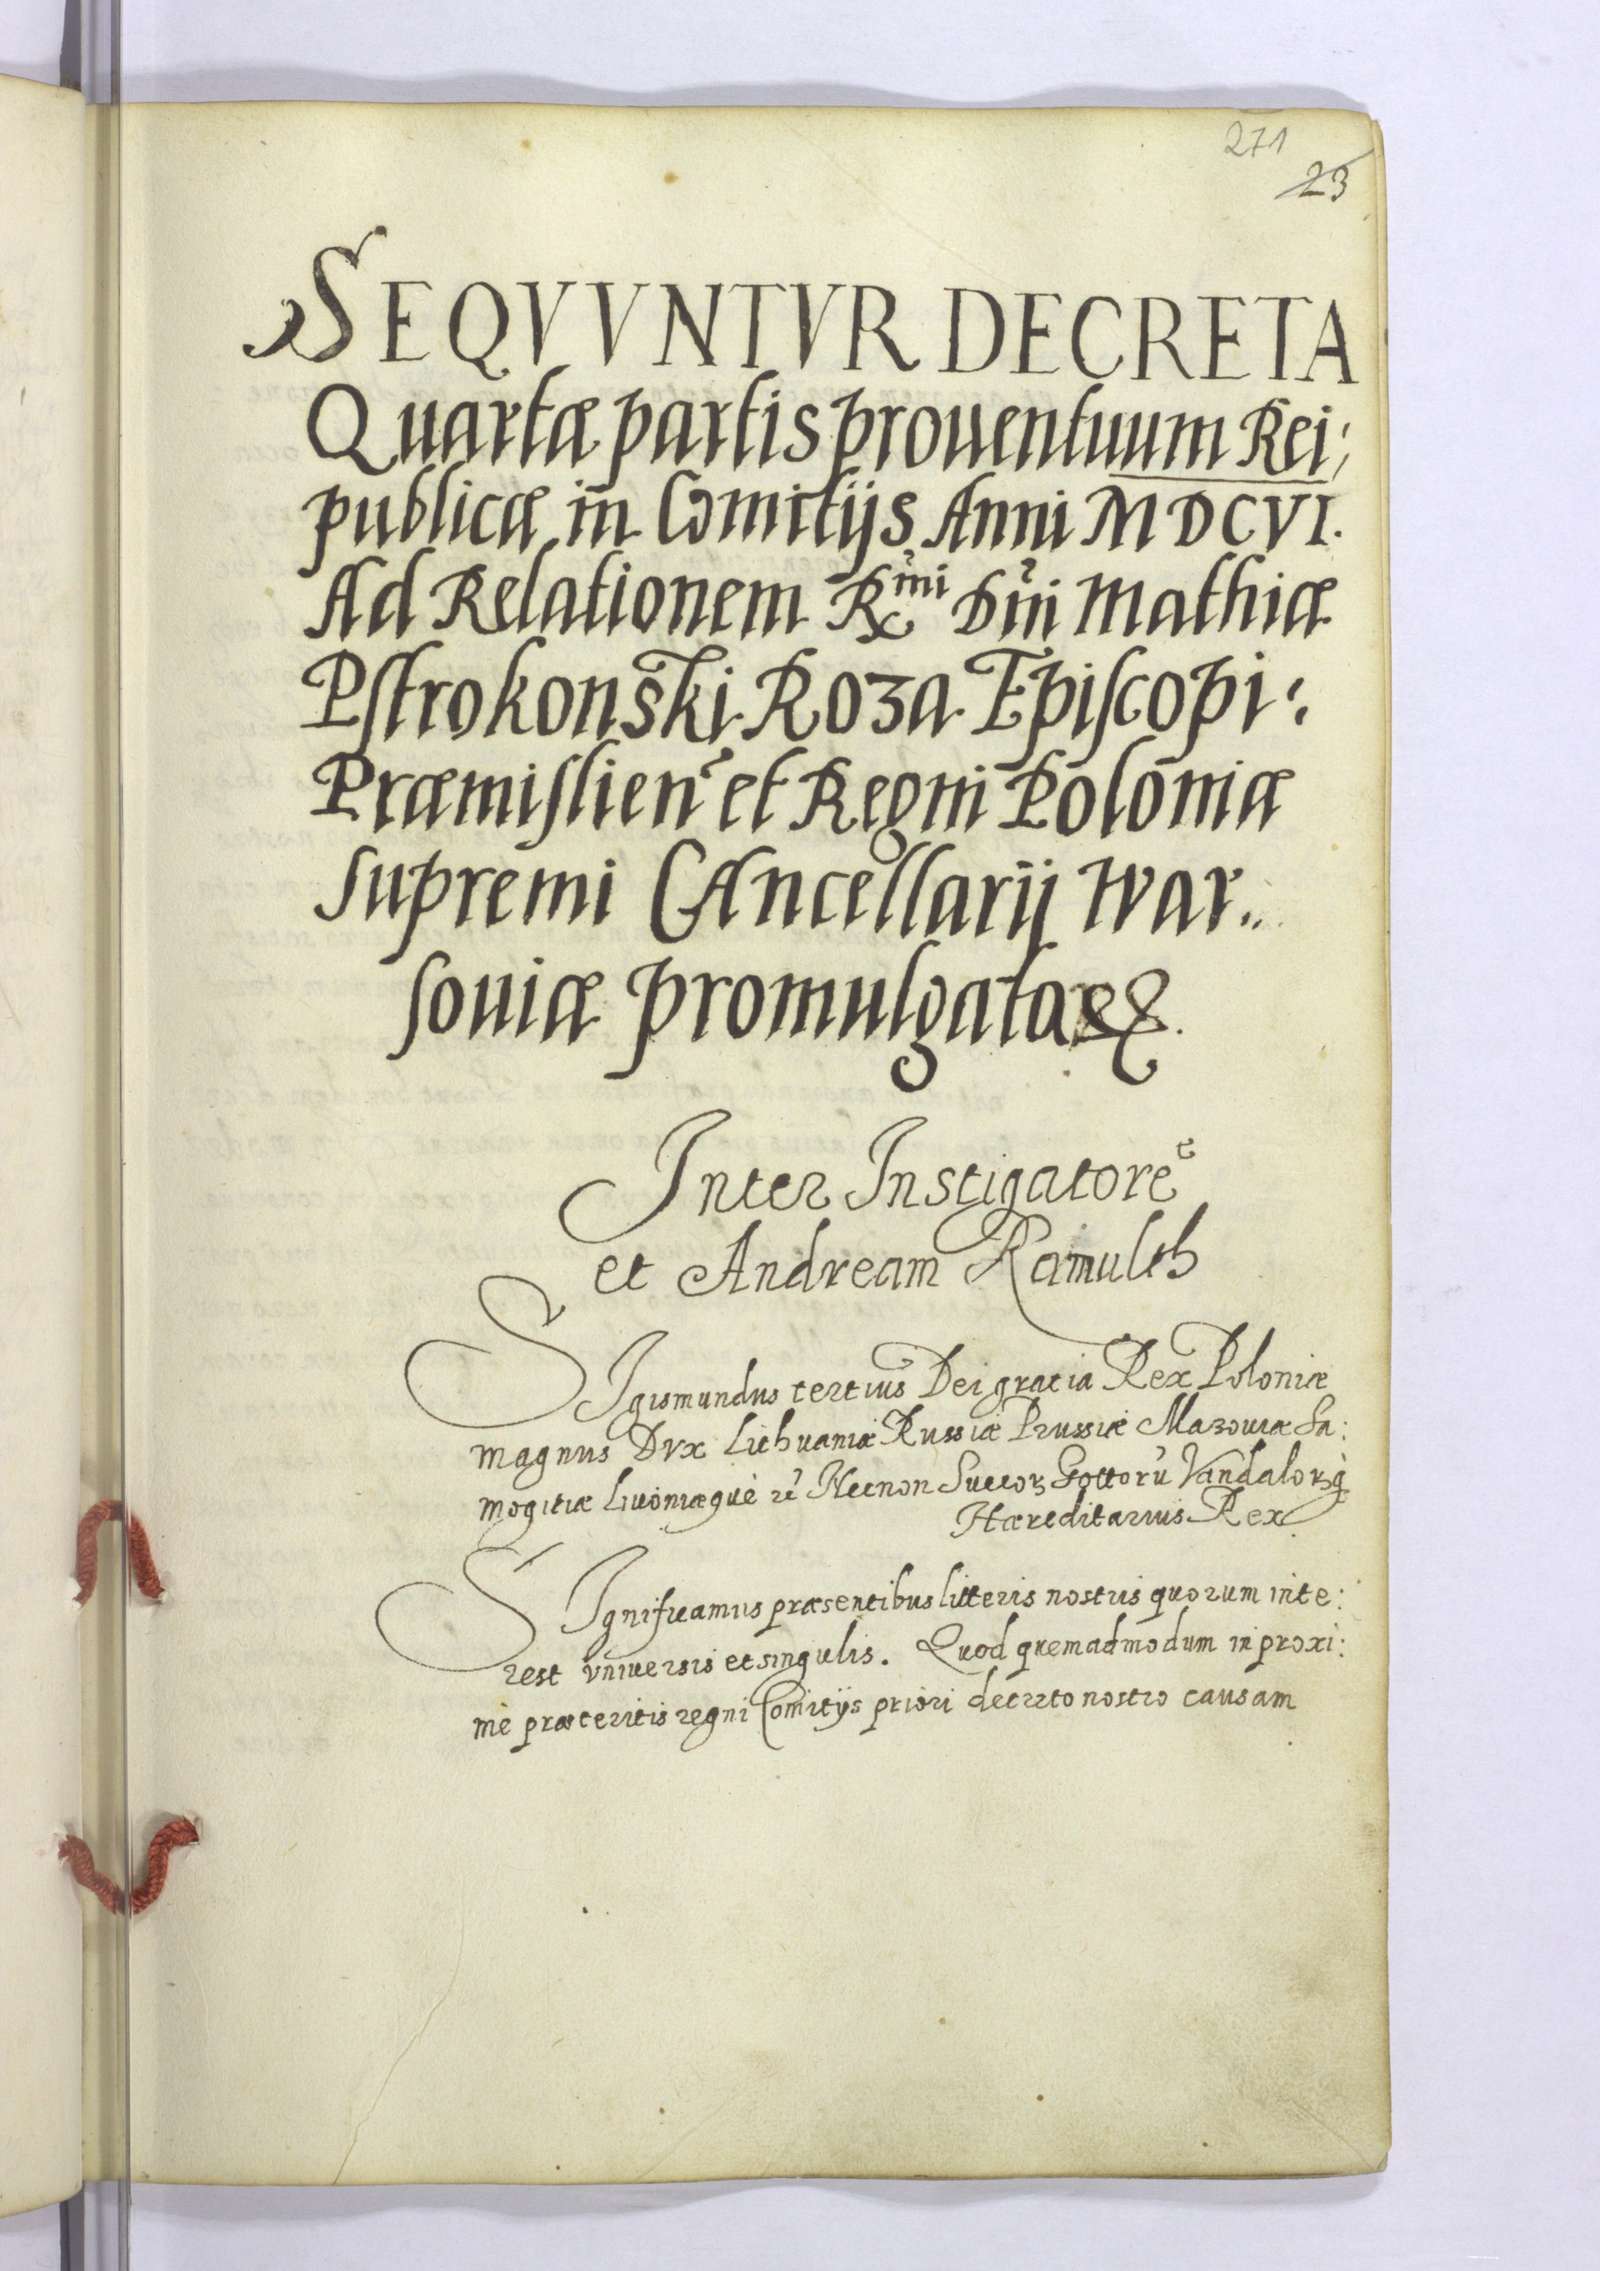 271
23
SEQVVNTVR DECRETA
Quartæ partis prouentuum Rei:
publicæ in Comitijs Anni MDCVI.
Ad Relationem Rmi Dni Mathiæ
Pstrokonski Roza Episcopi:
Præmislien et Regni Poloniæ
supremi CAncellarij War..
souiæ promulgata &.
Inter Instigatore
et Andream Ramulth
SIgismundus tertius Dei gratia Rex Poloniæ
magnus Dvx Lithuaniæ Russiæ Prussiæ Mazouiæ Sa:
mogitiæ Liuoniæquè Necnon Suecor Gottorũ Vandalorq̃
Hæreditarius Rex
SIgnificamus præsentibus litteris nostris quorum inte:
rest vniuersis et singulis. Quod quemadmodum in proxi:
mè præteritis regni Comitijs priori decreto nostro causam